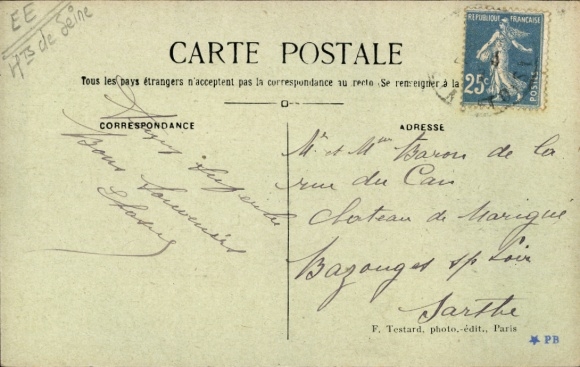 EE
Hts de Seine
RÉPUBLIQUE FRANÇAISE
25c
POSTES
CARTE POSTALE
Tous les pays étrangers n'acceptent pas la correspondance au recto (Se renseigner à la
CORRESPONDANCE
ADRESSE
Bons Souvenirs
Mr et Mme Baron de la
rue du Can
Chateau de Marigné
Bazouges s/p Loir
Sarthe
F. Testard, photo.-édit., Paris
PB